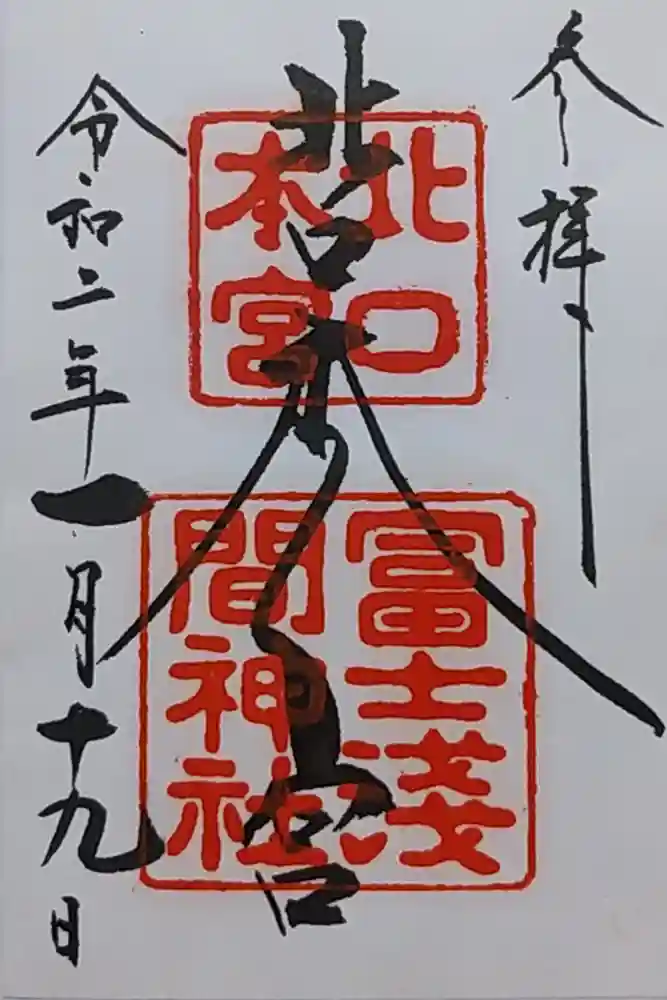 参拝
北口本宮
北口
本宮
冨士淺
間神社
令和二年一月十九日